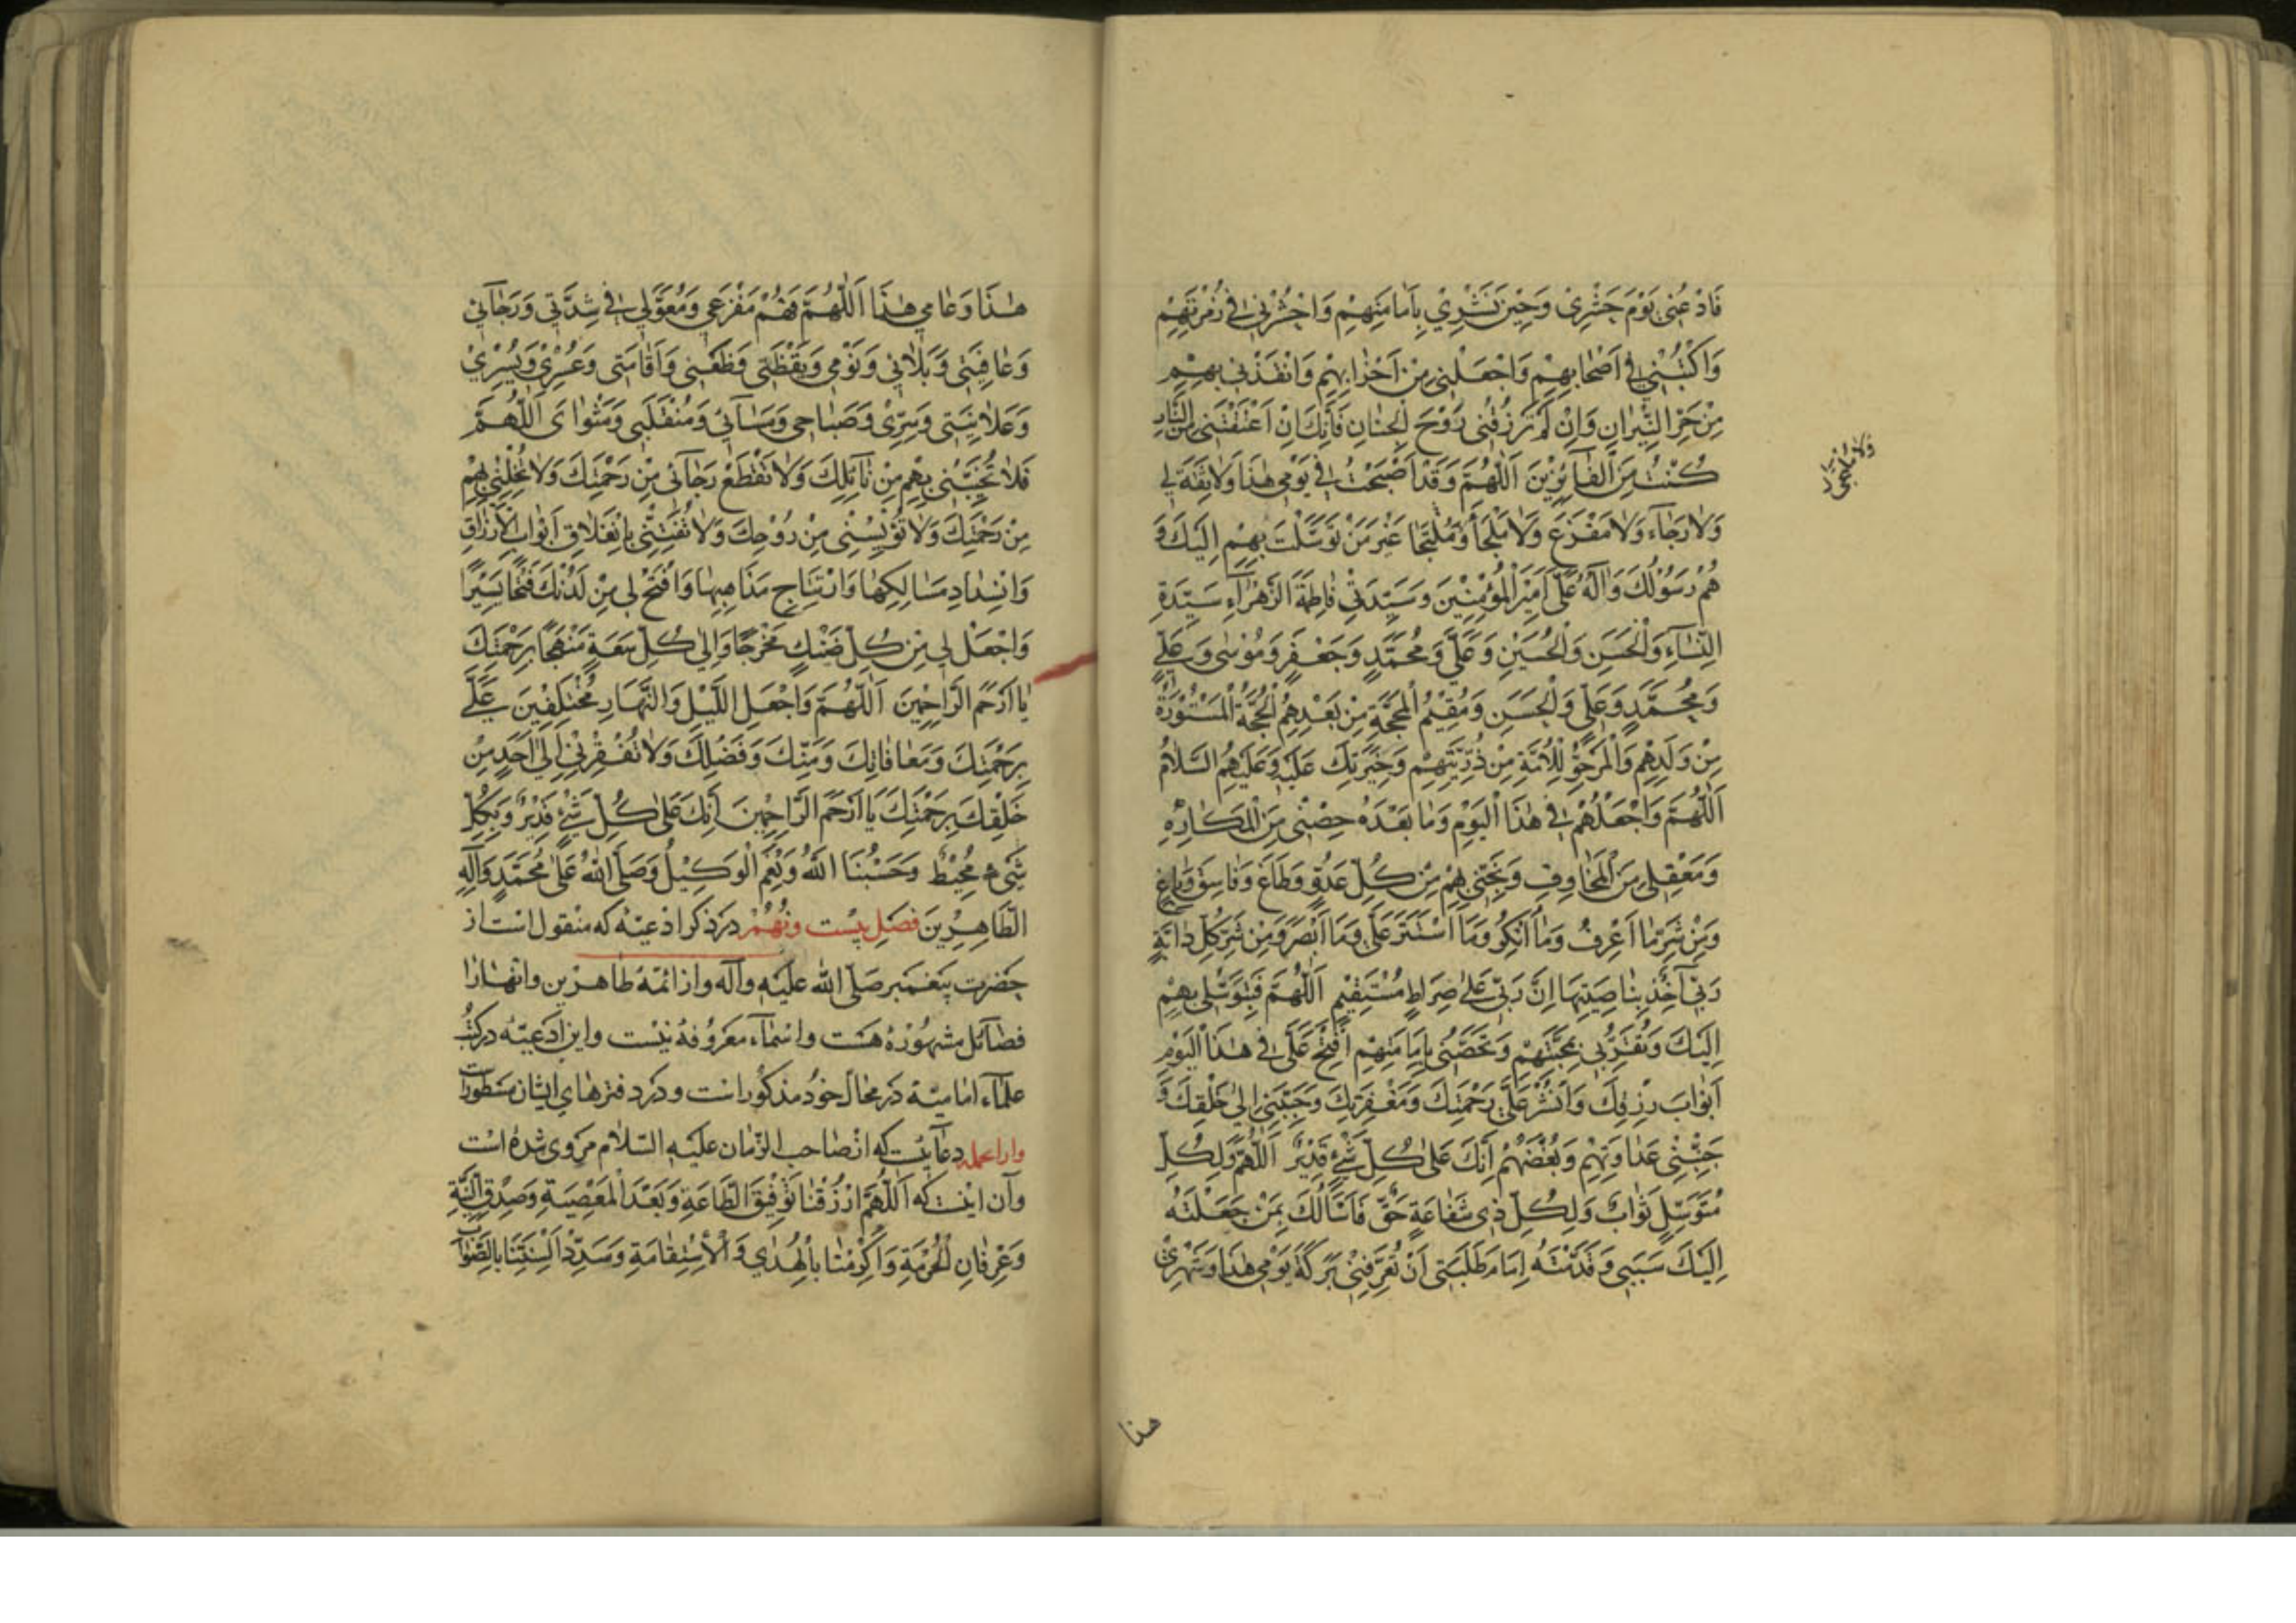 فَادْعُنِى يَوْمَ حَشْرِىْ وَحِيْنَ نَشْرِيْ بِاَمامَتِهِمْ وَاحْشُرْنِى فِى زُمْرَتِهِمْ
وَاكْتُبْنِىْ فِى اَصْحَابِهِمْ وَاجْعَلْنِى مِنْ اَحْزَابِهِمْ وَانْقِذْنِى بِهِمْ
مِنْ حَرِّ النِّيْرَانِ وَاِنْ لَمْ تَرْزُقْنِى رَوْحَ الْجِنَانِ فَاِنَّكَ اِنْ اَعْتَقْتَنِى مِنَ النَّارِ
كُنْتُ مِنَ الْفَآئِزِيْنَ اَللّٰهُمَّ وَقَدْ اَصْبَحْتُ فِى يَوْمِى هٰذَا وَلَا ثِقَةَ لِى
وَلَا رَجَاءَ وَلَا مَفْزَعَ وَلَا مَلْجَأَ وَمُلْتَجَا غَيْرَ مَنْ تَوَسَّلْتُ بِهِمْ اِلَيْكَ وَ
هُمْ رَسُوْلُكَ وَآلُهُ عَلِىٌّ اَمِيْرُ الْمُؤْمِنِيْنَ وَسَيِّدَتِىْ فَاطِمَةُ الزَّهْرَآءِ سَيِّدَةِ
النِّسَاءِ وَالْحَسَنِ وَالْحُسَيْنِ وَعَلِىٍّ وَمُحَمَّدٍ وَجَعْفَرٍ وَمُوْسٰى وَعَلِىٍّ
وَمُحَمَّدٍ وَعَلِىٍّ وَالْحَسَنِ وَمُقِيْمُ الْمَحَجَّةِ مِنْ بَعْدِهِمُ الْحُجَّةُ الْمَسْتُوْرَةُ
مِنْ وَلَدِهِمْ وَالْمَرْجُوُّ لِلْاُمَّةِ مِنْ ذُرِّيَّتِهِمْ وَخِيَرَتِكَ عَلَيْهِ وَعَلَيْهِمُ السَّلَامُ
اَللّٰهُمَّ وَاجْعَلْهُمْ فِى هٰذَا الْيَوْمِ وَمَا بَعْدَهُ حِصْنِى مِنَ الْمَكَارِهِ
وَمَعْقِلِى مِنَ الْمَخَاوِفِ وَنَجِّنِى بِهِمْ مِنْ كُلِّ عَدُوٍّ وَطَاغٍ وَفَاسِقٍ وَبَاغٍ
وَمِنْ شَرِّ مَا اَعْرِفُ وَمَا اُنْكِرُ وَمَا اسْتَتَرَ عَلَىَّ وَمَا اَبْصُرُ وَمِنْ شَرِّ كُلِّ دَابَّةٍ
رَبِّى آخِذٌ بِنَاصِيَتِهَا اِنَّ رَبِّى عَلٰى صِرَاطٍ مُسْتَقِيْمٍ اَللّٰهُمَّ فَبِتَوَسُّلِى بِهِمْ
اِلَيْكَ وَتَقَرُّبِى بِمَحَبَّتِهِمْ وَتَحَصُّنِى بِاِمَامَتِهِمْ اَفْتَحْ عَلَىَّ فِى هٰذَا الْيَوْمِ
اَبْوَابَ رِزْقِكَ وَانْشُرْ عَلَىَّ رَحْمَتَكَ وَمَغْفِرَتِكَ وَحَبِّبْنِى اِلٰى خَلْقِكَ وَ
جَنِّبْنِى عَدَاوَتِهِمْ وَبُغْضَهُمْ اِنَّكَ عَلٰى كُلِّ شَىْءٍ قَدِيْرٌ اَللّٰهُمَّ وَلِكُلِّ
مُتَوَسِّلٍ ثَوَابٌ وَلِكُلِّ ذِى شَفَاعَةٍ حَقٌّ فَاَسْاَلُكَ بِمَنْ جَعَلْتَهُ
اِلَيْكَ سَبَبِى وَقَدَّمْتَهُ اِمَامَ طَلِبَتِى اَنْ تُعَرِّفَنِىْ بَرَكَةَ يَوْمِى هٰذَا وَشَهْرِىْ
هذا
هٰذَا وَعَامِى هٰذَا اَللّٰهُمَّ فَهُمْ مَفْزَعِى وَمُعَوَّلِى فِى شِدَّتِى وَرَجَآئِى
وَعَافِيَتِى وَبَلَائِى وَنَوْمِى وَيَقْظَتِى وَظَعْنِى وَاَقَامَتِى وَعُسْرِىْ وَيُسْرِىْ
وَعَلَانِيَتِى وَسِرِّىْ وَصَبَاحِى وَمَسَآئِى وَمُنْقَلَبِى وَمَثْوَاىَ اَللّٰهُمَّ
فَلَا تُخَيِّبْنِى بِهِمْ مِنْ نَآئِلِكَ وَلَا تَقْطَعْ رَجَآئِى مِنْ رَحْمَتِكَ وَلَا تُخْلِنِى بِهِمْ
مِنْ رَحْمَتِكَ وَلَا تُؤْيِسْنِى مِنْ رُوْحِكَ وَلَا تُفْتِنِّى بِانْغِلَاقِ اَبْوَابِ الْاَرْزَاقِ
وَانْسِدَادِ مَسَالِكِهَا وَارْتِتَاجِ مَذَاهِبِهَا وَافْتَحْ لِى مِنْ لَدُنْكَ فَتْحًا يَسِيْرًا
وَاجْعَلْ لِى مِنْ كُلِّ ضَنْكٍ مَخْرَجًا وَاِلٰى كُلِّ سَعَةٍ مَنْهَجًا بِرَحْمَتِكَ
يَا اَرْحَمَ الرَّاحِمِيْنَ اَللّٰهُمَّ وَاجْعَلِ اللَّيْلَ وَالنَّهَارِ مُخْتَلِفِيْنَ عَلَىَّ
بِرَحْمَتِكَ وَمَعَافَاتِكَ وَمَنِّكَ وَفَضْلِكَ وَلَا تُفْقِرْنِىْ اِلٰى اَحَدٍ مِنْ
خَلْقِكَ بِرَحْمَتِكَ يَا اَرْحَمَ الرَّاحِمِيْنَ اِنَّكَ عَلٰى كُلِّ شَىْءٍ قَدِيْرٌ وَبِكُلِّ
شَىْءٍ مُحِيْطٌ وَحَسْبُنَا اللّٰهُ وَنِعْمَ الْوَكِيْلُ وَصَلَّى اللّٰهُ عَلٰى مُحَمَّدٍ وَآلِهِ
الطَّاهِرِيْنَ فصل بيست ونهم در ذكر ادعيّه كه منقول است از
حضرت پيغمبر صلّى الله عليه وآله واز ائمّه طاهرين وانهارا
فضآئل مشهوره هست واسمآء معروفه نيست واين ادعيّه در كتب
علمآء اماميّه در محالّ خود مذكور است ودر دفترهاى ايشان مسطورات
وازانجمله دعائيست كه از صاحب الزّمان عليه السّلام مروى شده است
وآن اينست كه اَللّٰهُمَّ ارْزُقْنَا تَوْفِيْقَ الطَّاعَةِ وَبُعْدَ الْمَعْصِيَةِ وَصِدْقَ النِّيَّةِ
وَعِرْفَانِ الْحُرْمَةِ وَاَكْرِمْنَا بِالْهُدٰى وَالْاِسْتِقَامَةِ وَسَدِّدْ اَلْسِنَتَنَا بِالصَّوَابِ